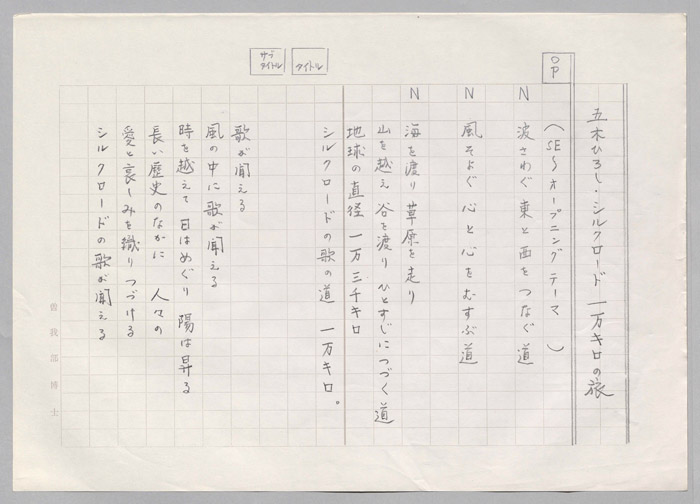 五木ひろし・シルクロード 一万キロの旅
OP
(SE〜オープニングテーマ )
N
波さわぐ 東と西をつなぐ道
N
風そよぐ 心と心をむすぶ道
N
海を渡り 草原を走り
山を越え 谷を渡り ひとすじにつづく道
地球の直径 一万三千キロ
タイトル
シルクロードの歌の道 一万キロ。
サブタイトル
歌が聞える
風の中に歌が聞える
時を越えて 日はめぐり 陽は昇る
長い歴史のなかに 人々の
愛と哀しみを織りつづける
シルクロードの歌が聞える
曽我部博士